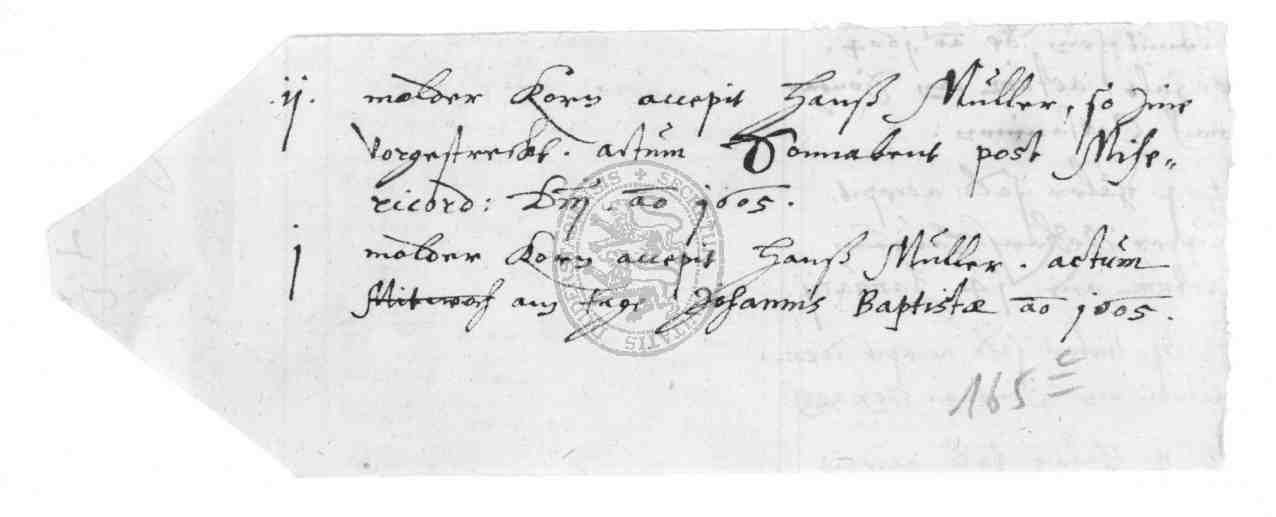 ij. molder Korn accepit Hanß Müller, so Ime
vorgestreckt. actum Sonnabent post Mise=
ricord: Dnj. ao 1605.
j molder Korn accepit Hanß Müller. actum
Mitwoch am tage Johannis Baptistæ ao 1605.
165 c